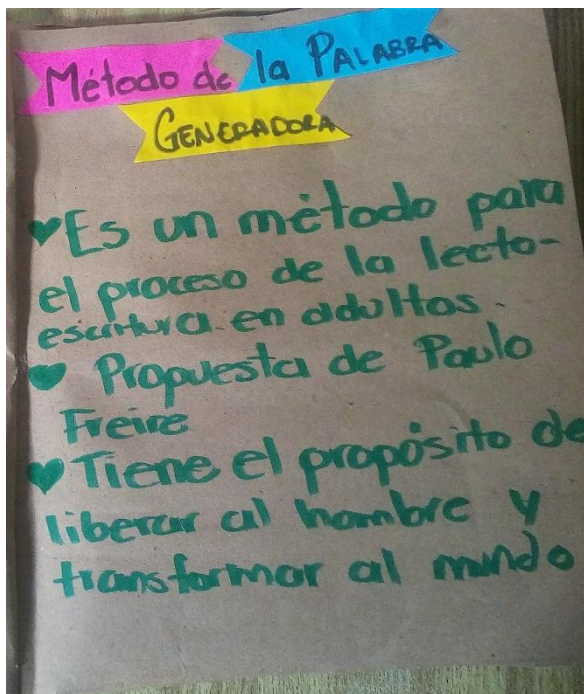 Método de la PALABRA
GENERADORA
♥Es un método para
el proceso de la lecto-
escritura en adultos.
♥ Propuesta de Paulo
Freire
♥Tiene el propósito de
liberar al hombre y
transformar al mundo